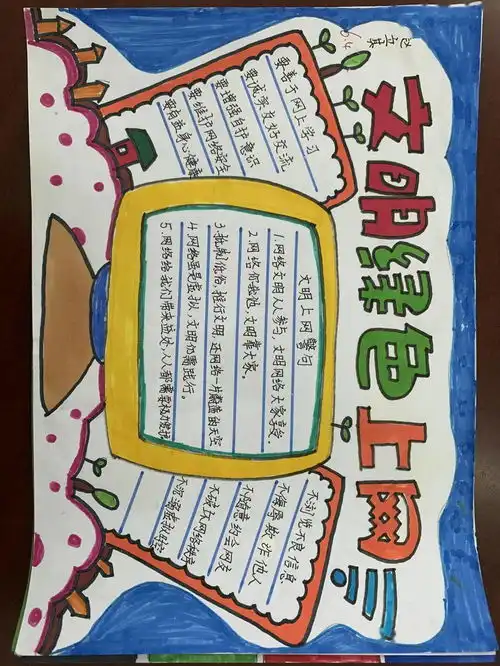 文明绿色上网
6.4
要善于网上学习
要诚实友好交流
要增强自护意识
要维护网络安全
要有益身心健康
文明上网警句
1.网络文明人人参与,文明网络大家享受。
2.网络你我他,文明靠大家。
3.抵制低俗,推行文明,还网络一片蔚蓝的天空
4.网络虽是虚拟,文明仍需践行。
5.网络给我们带来益处,人人都需要维护
不浏览不良信息
不侮辱欺诈他人
不随意约会网友
不破坏网络秩序
不沉溺虚拟时空